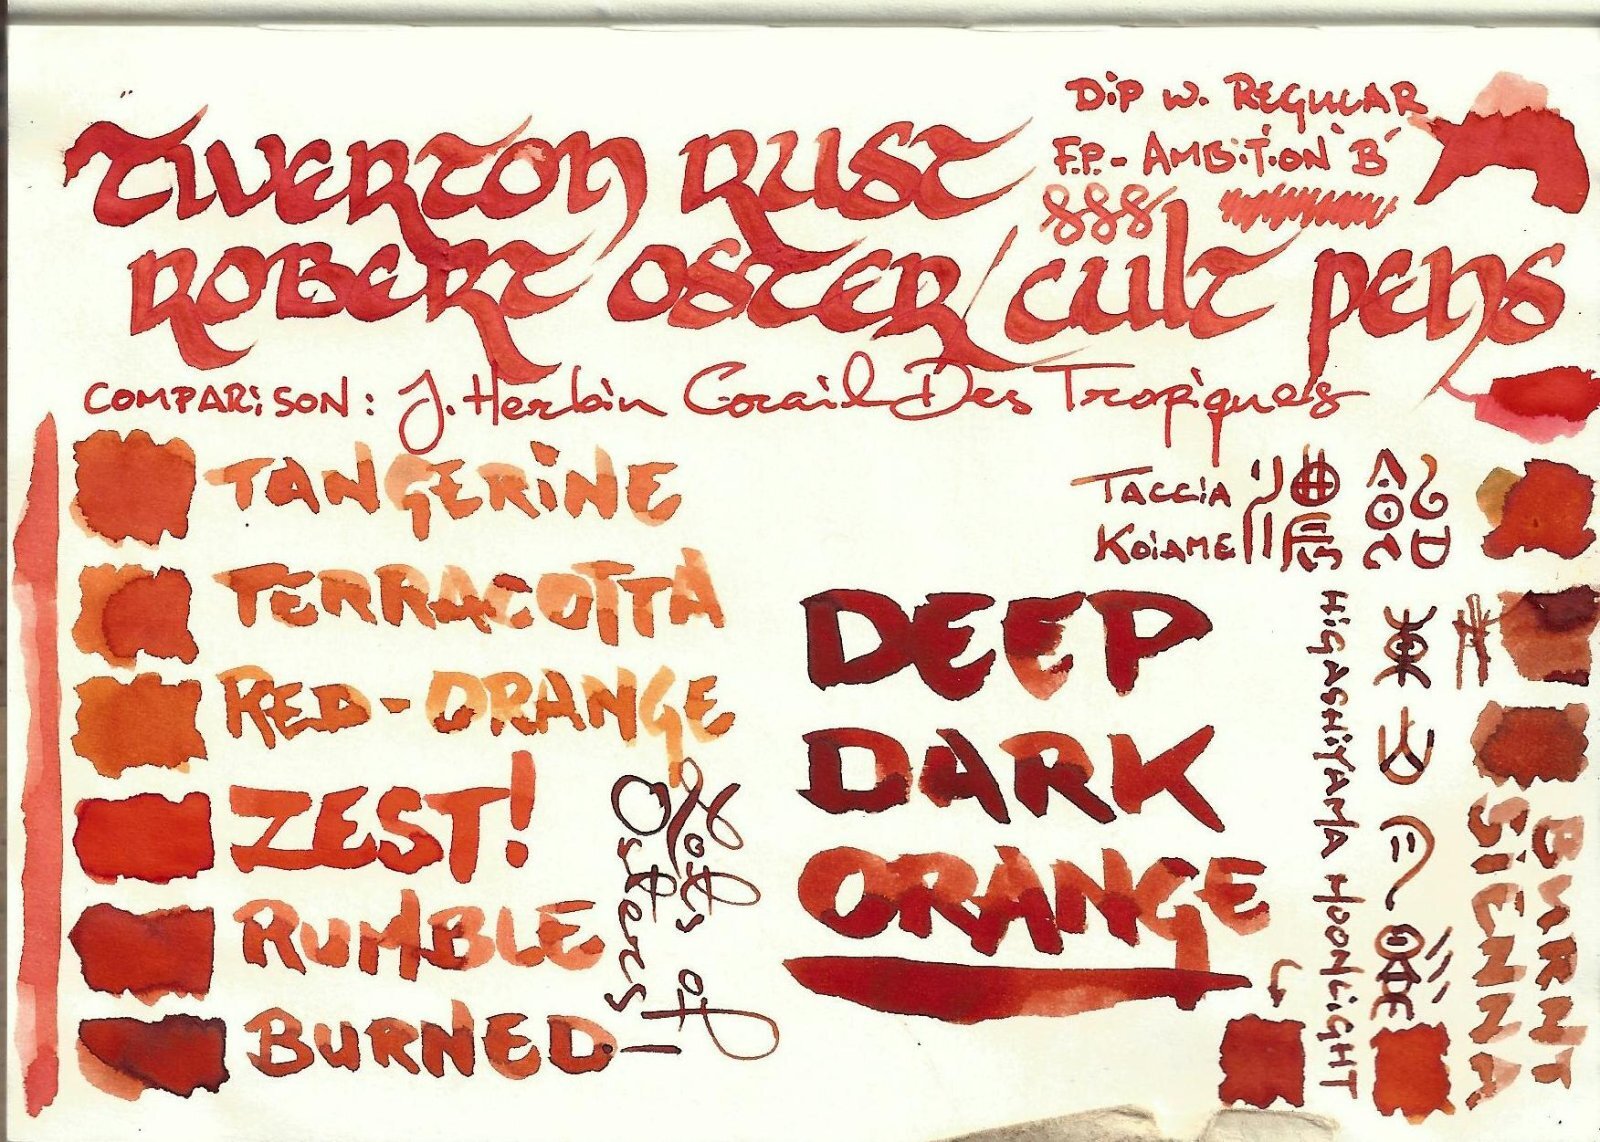 DiP w. REGULAR
F.P.- AMBiTiON 'B'
TIVERTON RUST
888
ROBERT OSTER/CULT PENS
COMPARiSON: J. Herbin Corail Des Tropiques
TANGERiNE
TACCiA
KOiAME
TERRACOTTA
RED-ORANGE
ZEST!
RUMBLE
BURNED
Lots of
Osters!
DEEP
DARK
ORANGE
HiGASHiYAMA MOONLiGHT
BURNT
SiENNA